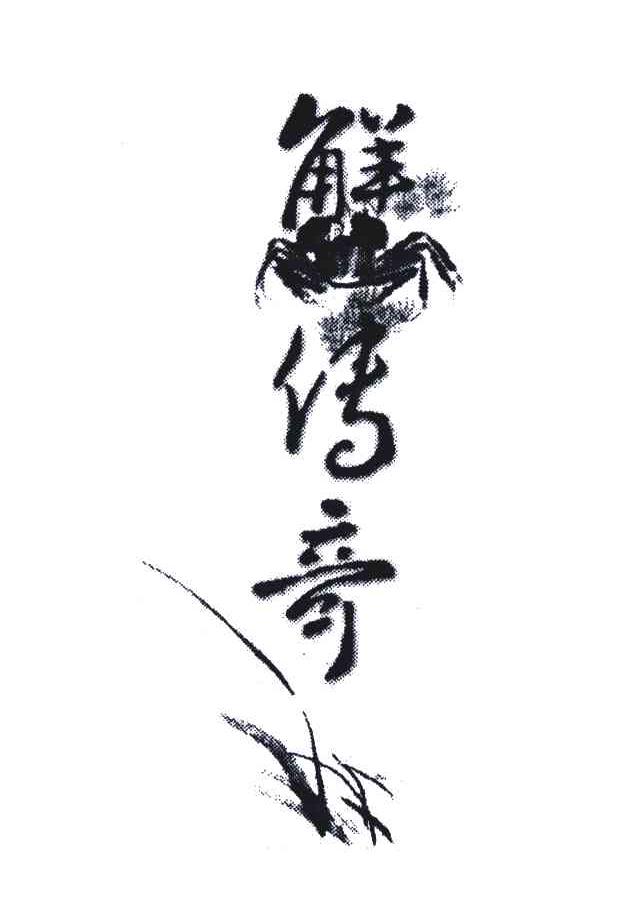 蟹传奇